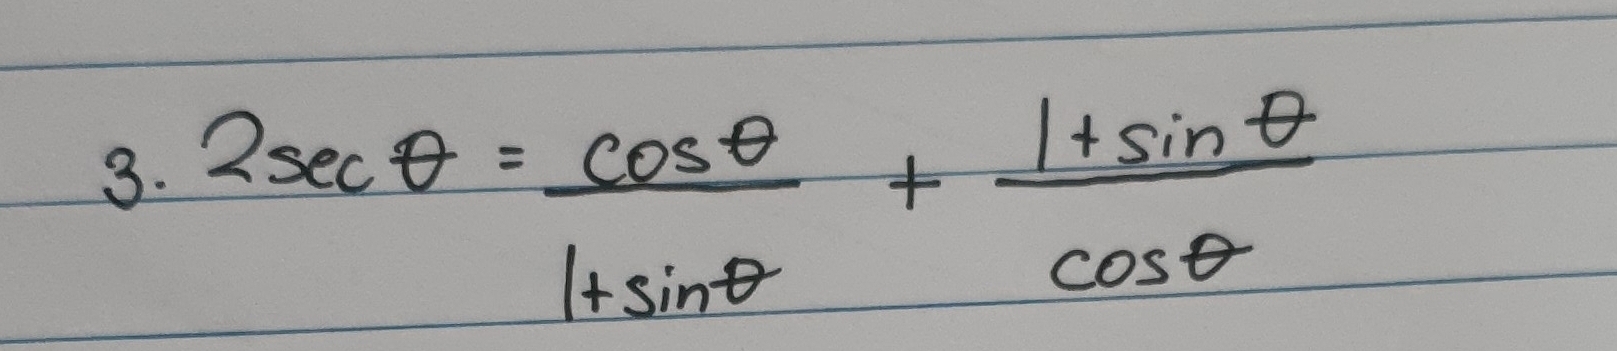 3. 2sec θ = cosθ/1+sinθ + 1+sin θ/cosθ